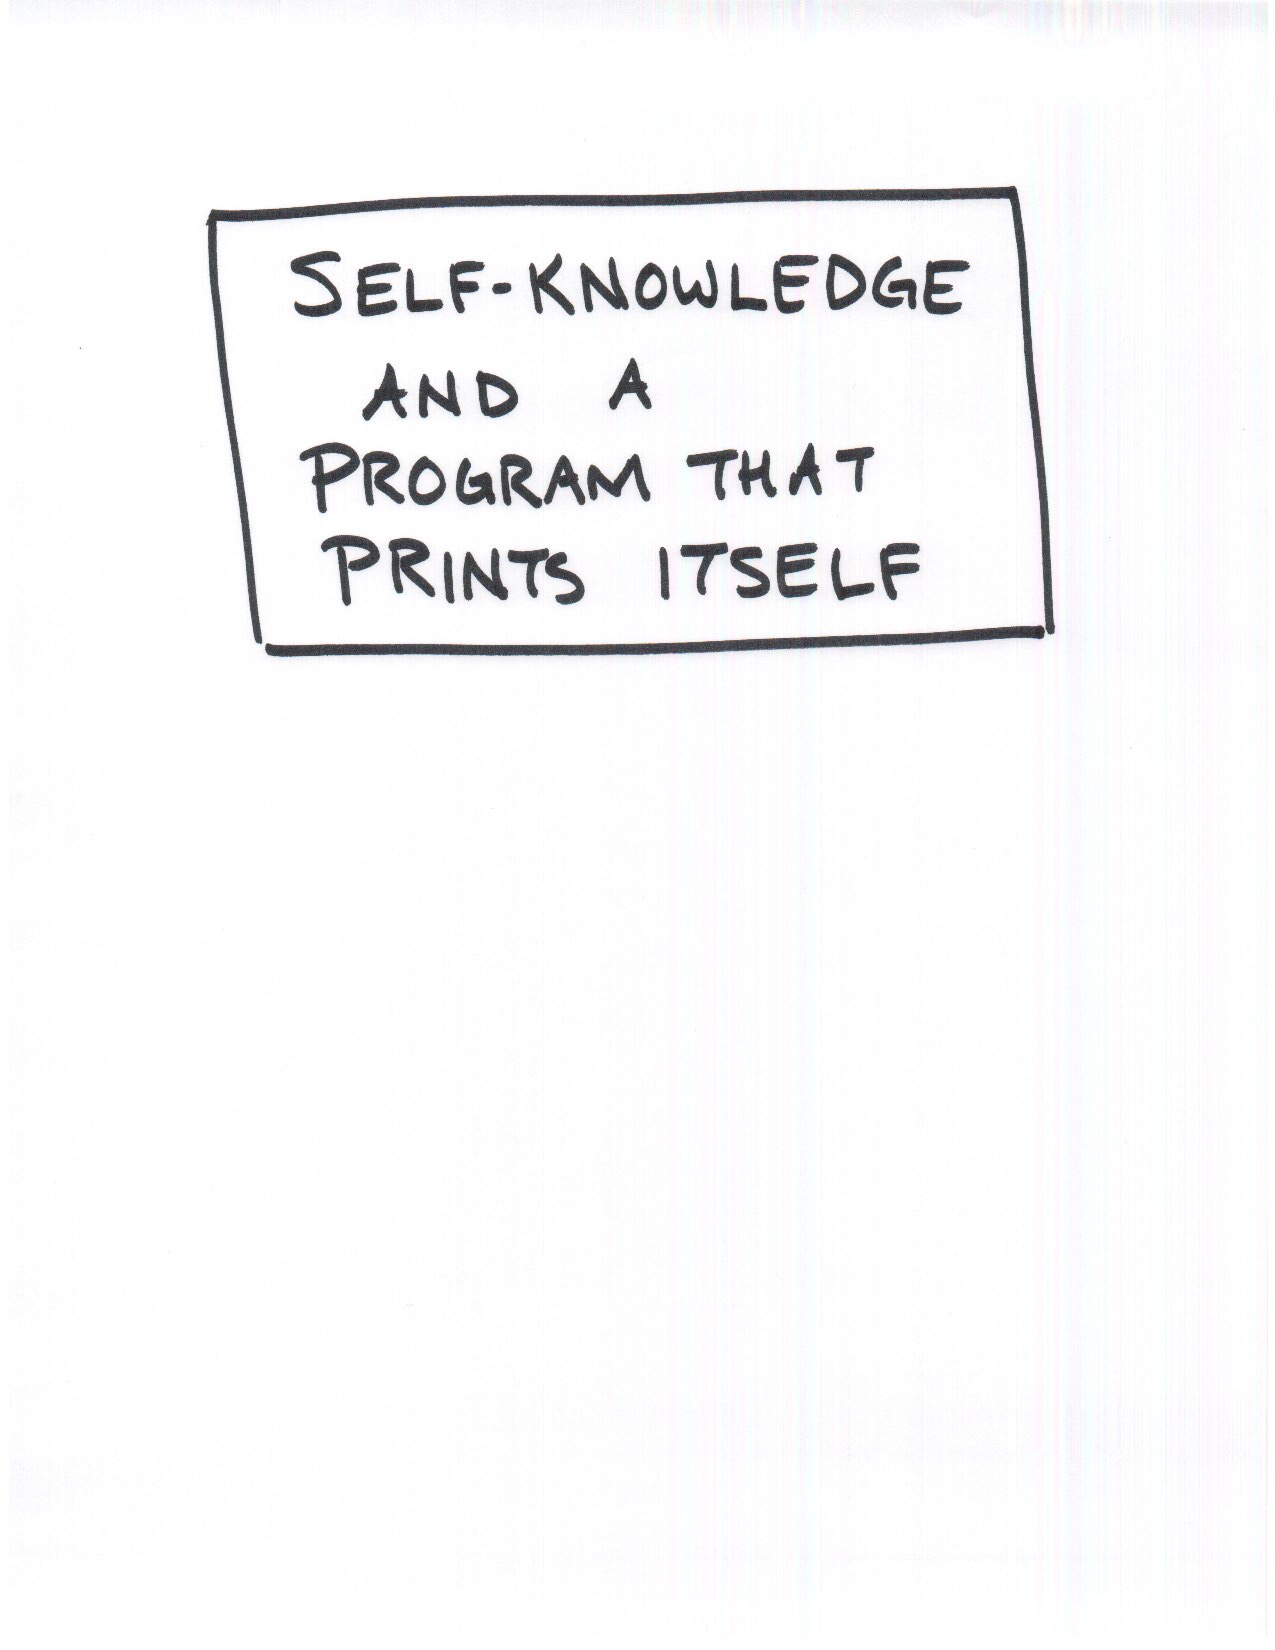 SELF-KNOWLEDGE
AND A
PROGRAM THAT
PRINTS ITSELF